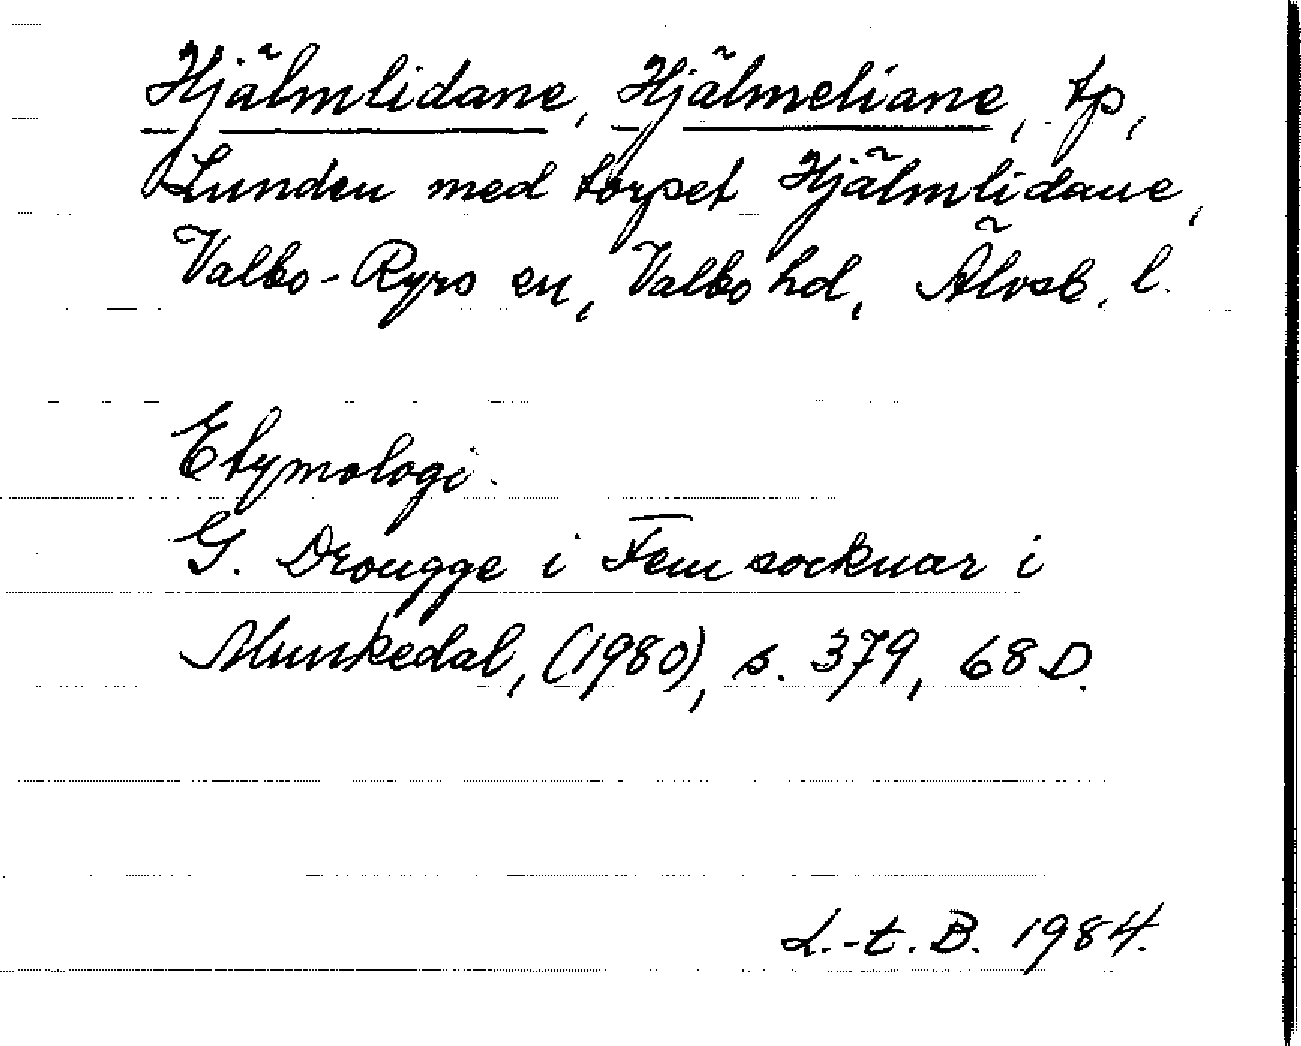 Hjälmlidane, Hjälmeliane, tp,
Lunden med torpet Hjälmlidane,
Valbo-Ryrs sn, Valbo hd, Älvsb. l.
Etymologi.
G. Drougge i Fem socknar i
Munkedal, (1980), s. 379, 68 D.
L.-t. B. 1984.